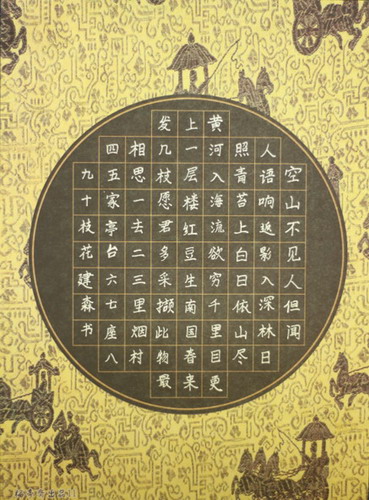 空山不见人但闻
人语响返影入深林日
照青苔上白日依山尽
黄河入海流欲穷千里目更
上一层楼红豆生南国春来
发几枝愿君多采撷此物最
相思一去二三里烟村
四五家亭台六七座八
九十枝花建森书